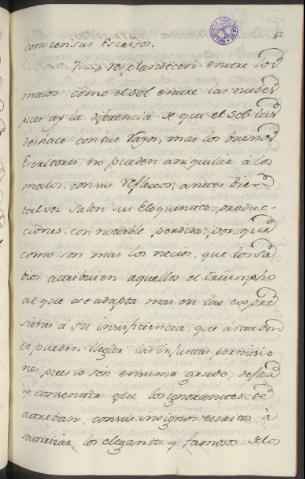 con con sus escritos.
resplandecen entre los
malos como el sol entre las nubes
pues ay la diferencia q.e el sol las
deshace con sus rayos, mas los buenos
Escritores, no pueden aniquilar a los
malos, con sus reflexos, antes bien
tal vez salen sus Eloquentes, produc-
ciones, con notable perdida, por que
como son mas los necios, que los sa
bios atribuien aquellos el triumpho
al que se adapta mas en las expre
siones à su insuficiencia, que
de pueden llegar las injustas permisio
nes, pues lo son en sumo grado,
y consentir que los ignorantes se
atrevan, con sus insignes escritos à
los elegantes y famosos de los